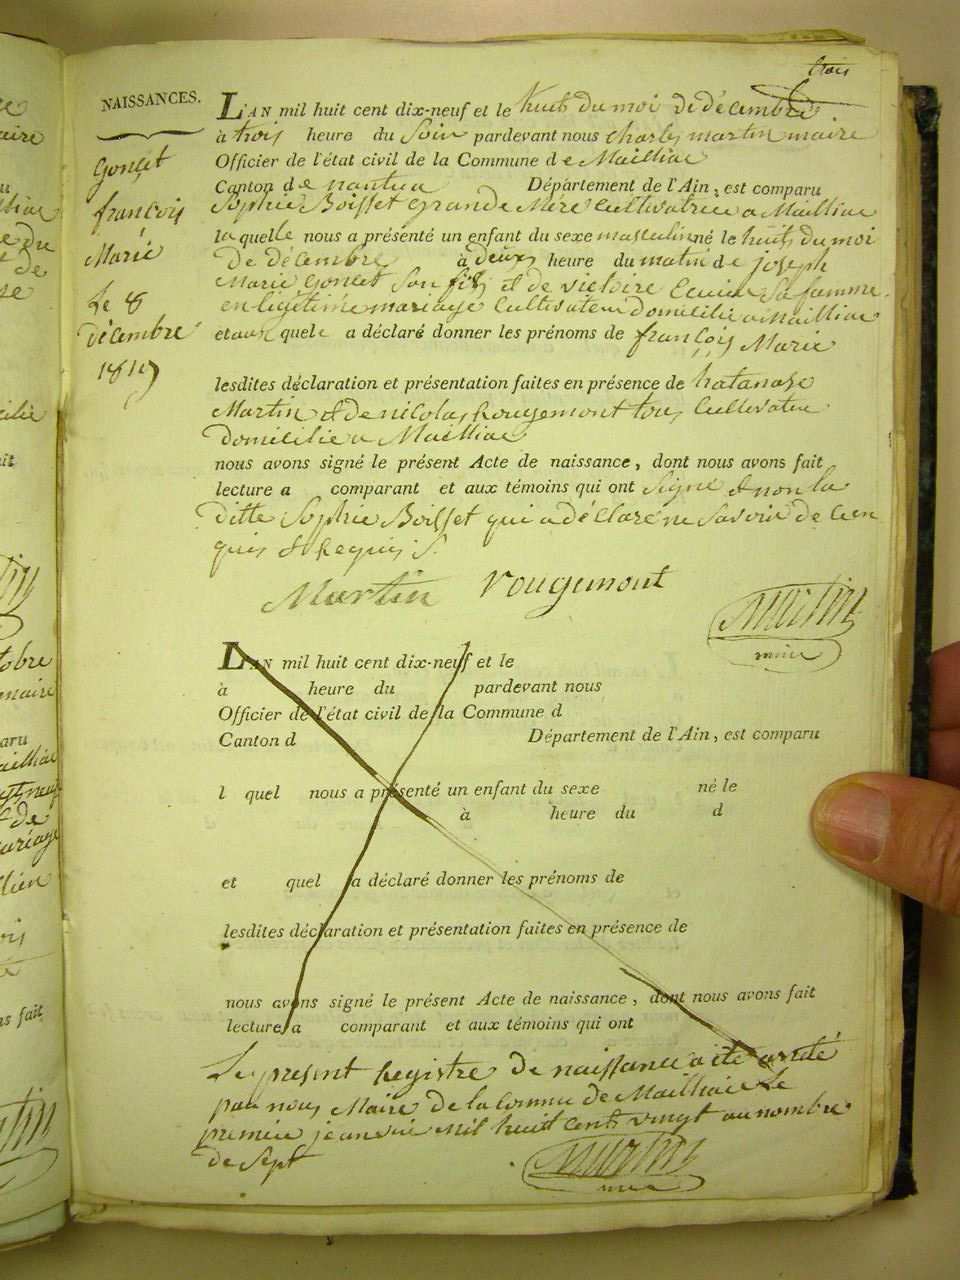 trois
NAISSANCES.
Gonçet
françois
Marie
Le 8
décembre
1819
L'AN mil huit cent dix-neuf et le huit du moi de décembre
à trois heure du Soir pardevant nous charles martin maire
Officier de l'état civil de la Commune de Mailliac
Canton de nantua Département de l'Ain, est comparu
Sophie Boisset Grande Mere Cultivatrice a Mailliac
laquelle nous a présenté un enfant du sexe masculin né le huit du moi
de décembre à deux heure du matin de joseph
Marie Goncet Son fils et de victoire Sa famme
en légitime mariage Cultivateur domicilié a Mailliac
et auquel a déclaré donner les prénoms de françois Marie
lesdites déclaration et présentation faites en présence de
Martin et de nicolas Rougemont tous Cultivateur
domicilié a Mailliac
nous avons signé le présent Acte de naissance, dont nous avons fait
lecture a comparant et aux témoins qui ont Signé et non la
ditte Sophie Boisset qui a déclaré ne Savoir de
quis et Requis
Martin rougemont
Martin
maire
L'AN mil huit cent dix-neuf et le
à heure du pardevant nous
Officier de l'état civil de la Commune d
Canton d Département de l'Ain, est comparu
l quel nous a présenté un enfant du sexe né le
à heure du d
et quel a déclaré donner les prénoms de
lesdites déclaration et présentation faites en présence de
nous avons signé le présent Acte de naissance, dont nous avons fait
lecture a comparant et aux témoins qui ont
Le present Registre de naissance a été arrété
par nous Maire de la Commu de Mailliac Le
premier jeanvié Mil huit Cent vingt au nombre
de Sept
Martin